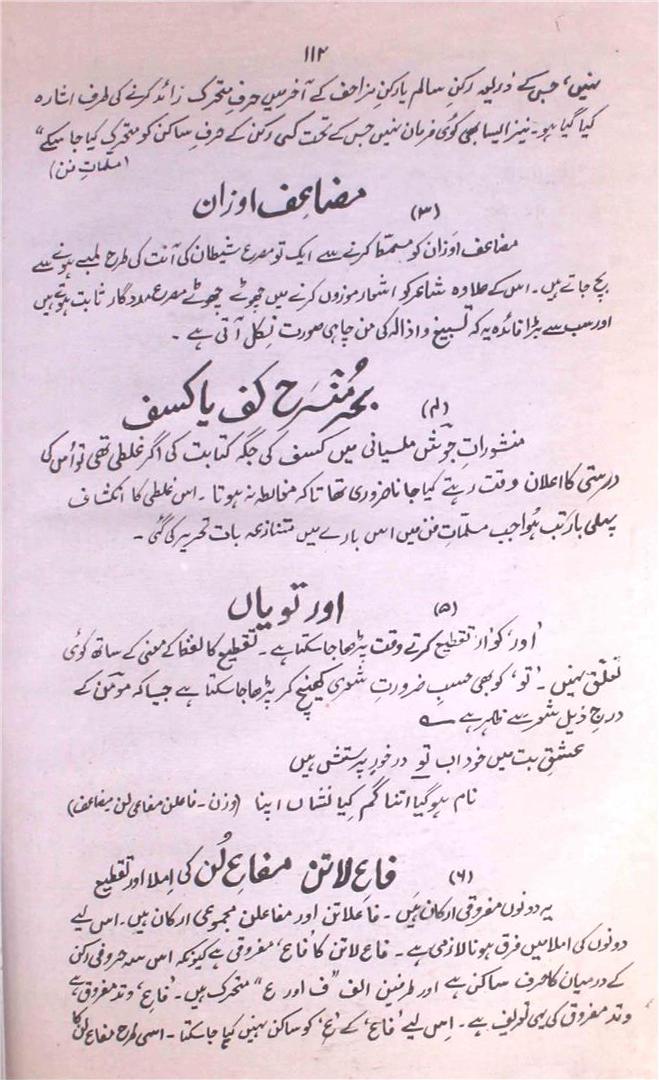 ۱۱۲
نہیں، جس کے ذریعہ رکنِ سالم یا رکنِ مزاحف کے آخر میں حرفِ متحرک زائد کرنے کی طرف اشارہ
کیا گیا ہو۔ نیز ایسا بھی کوئی فرمان نہیں جس کے تحت کسی رکن کے حرفِ ساکن کو متحرک کیا جا سکے“
(مسلماتِ فن)
(۳) مضاعف اوزان
مضاعف اوزان کو مسمط کرنے سے ایک تو مصرع شیطان کی آنت کی طرح لمبے ہونے سے
بچ جاتے ہیں۔ اس کے علاوہ شاعر کو اشعار موزوں کرنے میں چھوٹے چھوٹے مصرع مددگار ثابت ہوتے ہیں
اور سب سے بڑا فائدہ یہ کہ تسبیغ و اذالہ کی من چاہی صورت نکل آتی ہے۔
(۴) بحر مُنسَرِح کف یا کسف
منشوراتِ جوش ملسیانی میں کسف کی جگہ کتابت کی اگر غلطی تھی تو اُس کی
درستی کا اعلان وقت رہتے کیا جانا ضروری تھا تاکہ مغالطہ نہ ہوتا۔ اس غلطی کا انکشاف
پہلی بار تب ہُوا جب مسلّمات فن میں اس بارے میں متنازعہ بات تحریر کی گئی۔
(۵) اور تو یاں
’اور‘ کو ’ار‘ تقطیع کرتے وقت پڑھا جا سکتا ہے۔ تقطیع کا لفظ کے معنی کے ساتھ کوئی
تعلق نہیں۔ ’تو‘ کو بھی حسبِ ضرورتِ شعری کھینچ کر پڑھا جا سکتا ہے جیسا کہ مومن کے
درجِ ذیل شعر سے ظاہر ہے
عشقِ بت میں خود اب تو درخورِ پرستش ہیں
نام ہو گیا اتنا گم کیا نشاں اپنا (وزن۔ فاعلن مفاعی لن مضاعف)
(۶) فاعِ لاتن مفاعِ لُن کی اِملا اور تقطیع
یہ دونوں مفروقی ارکان ہیں۔ فاعلاتن اور مفاعلن مجموعی ارکان ہیں۔ اس لیے
دونوں کی املا میں فرق ہونا لازمی ہے۔ فاعِ لاتن کا ’فاعِ‘ مفروقی ہے کیونکہ اس سہ حروفی رکن
کے درمیان کا حرف ساکن ہے اور طرفین الف ”ف اور ع“ متحرک ہیں۔ ’فاعِ‘ وتد مفروق ہے
وتد مفروق کی یہی تعریف ہے۔ اِس لیے ’فاعِ‘ کے ’عِ‘ کو ساکن نہیں کیا جا سکتا۔ اسی طرح مفاعِ لن کا